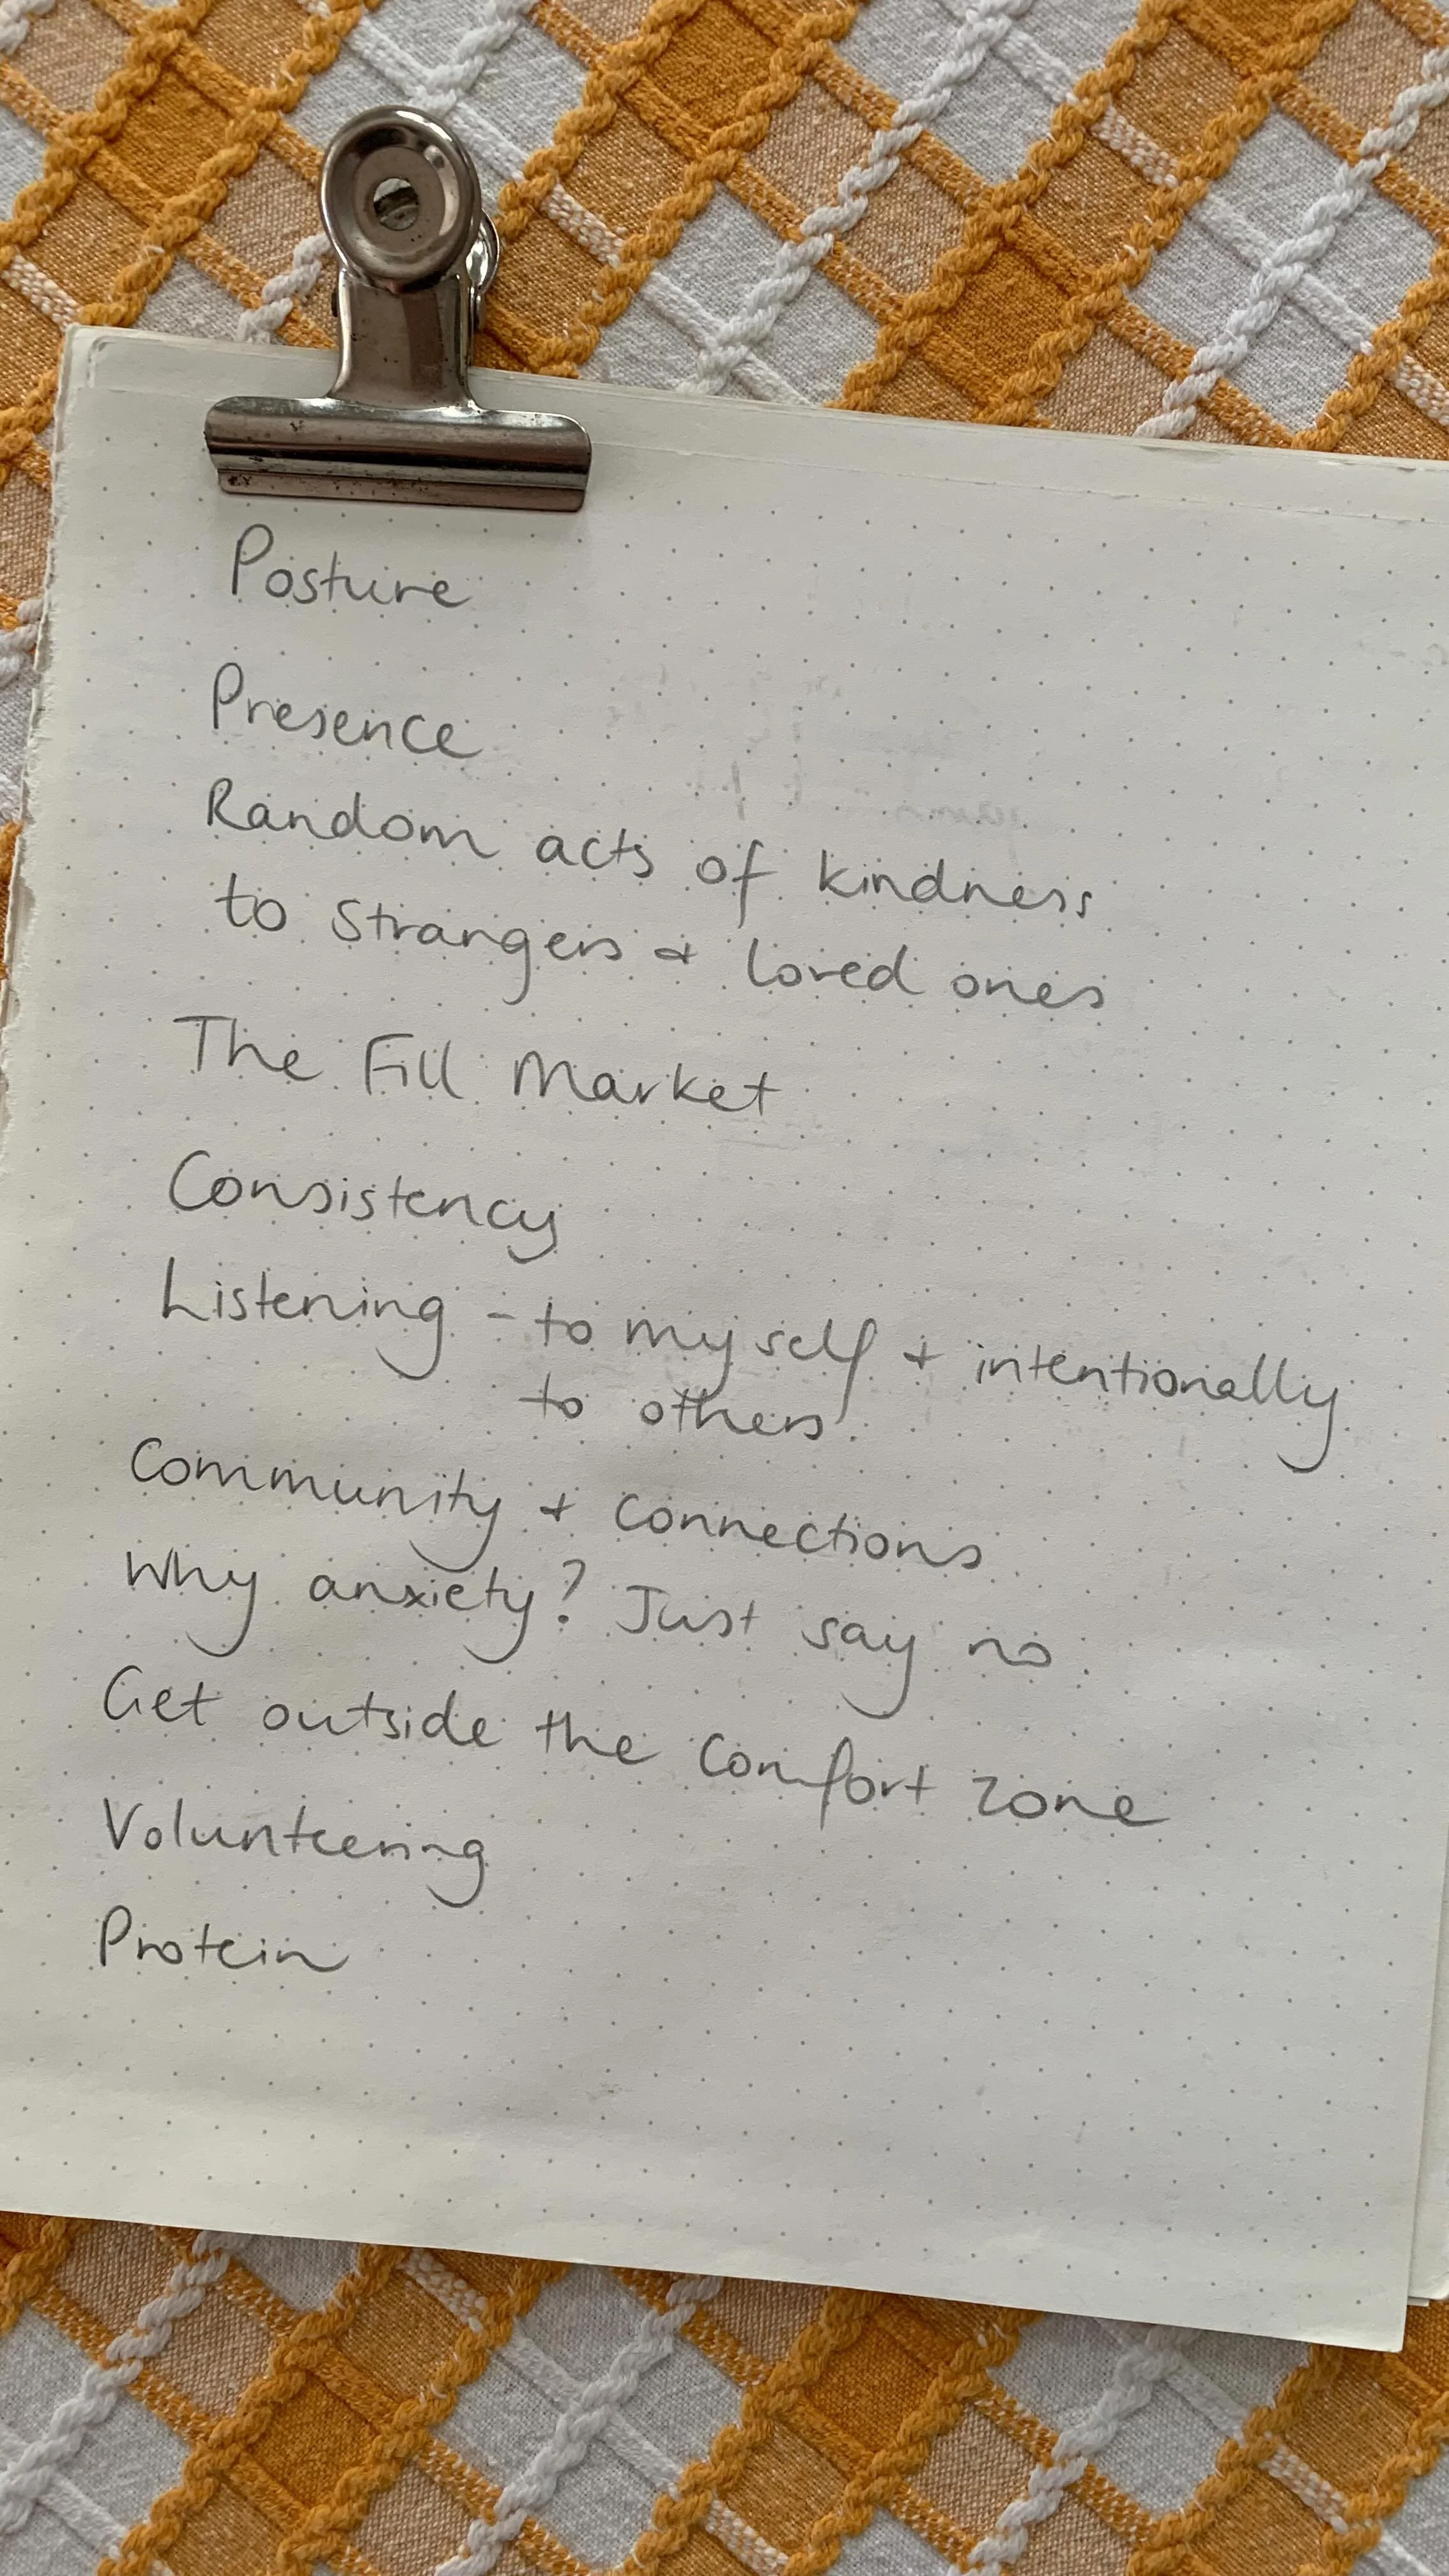 Posture
Presence
Random acts of kindness
to strangers + loved ones
The Fill Market
Consistency
Listening - to myself + intentionally
to others.
Community + connections
Why anxiety? Just say no.
Get outside the comfort zone
Volunteering
Protein